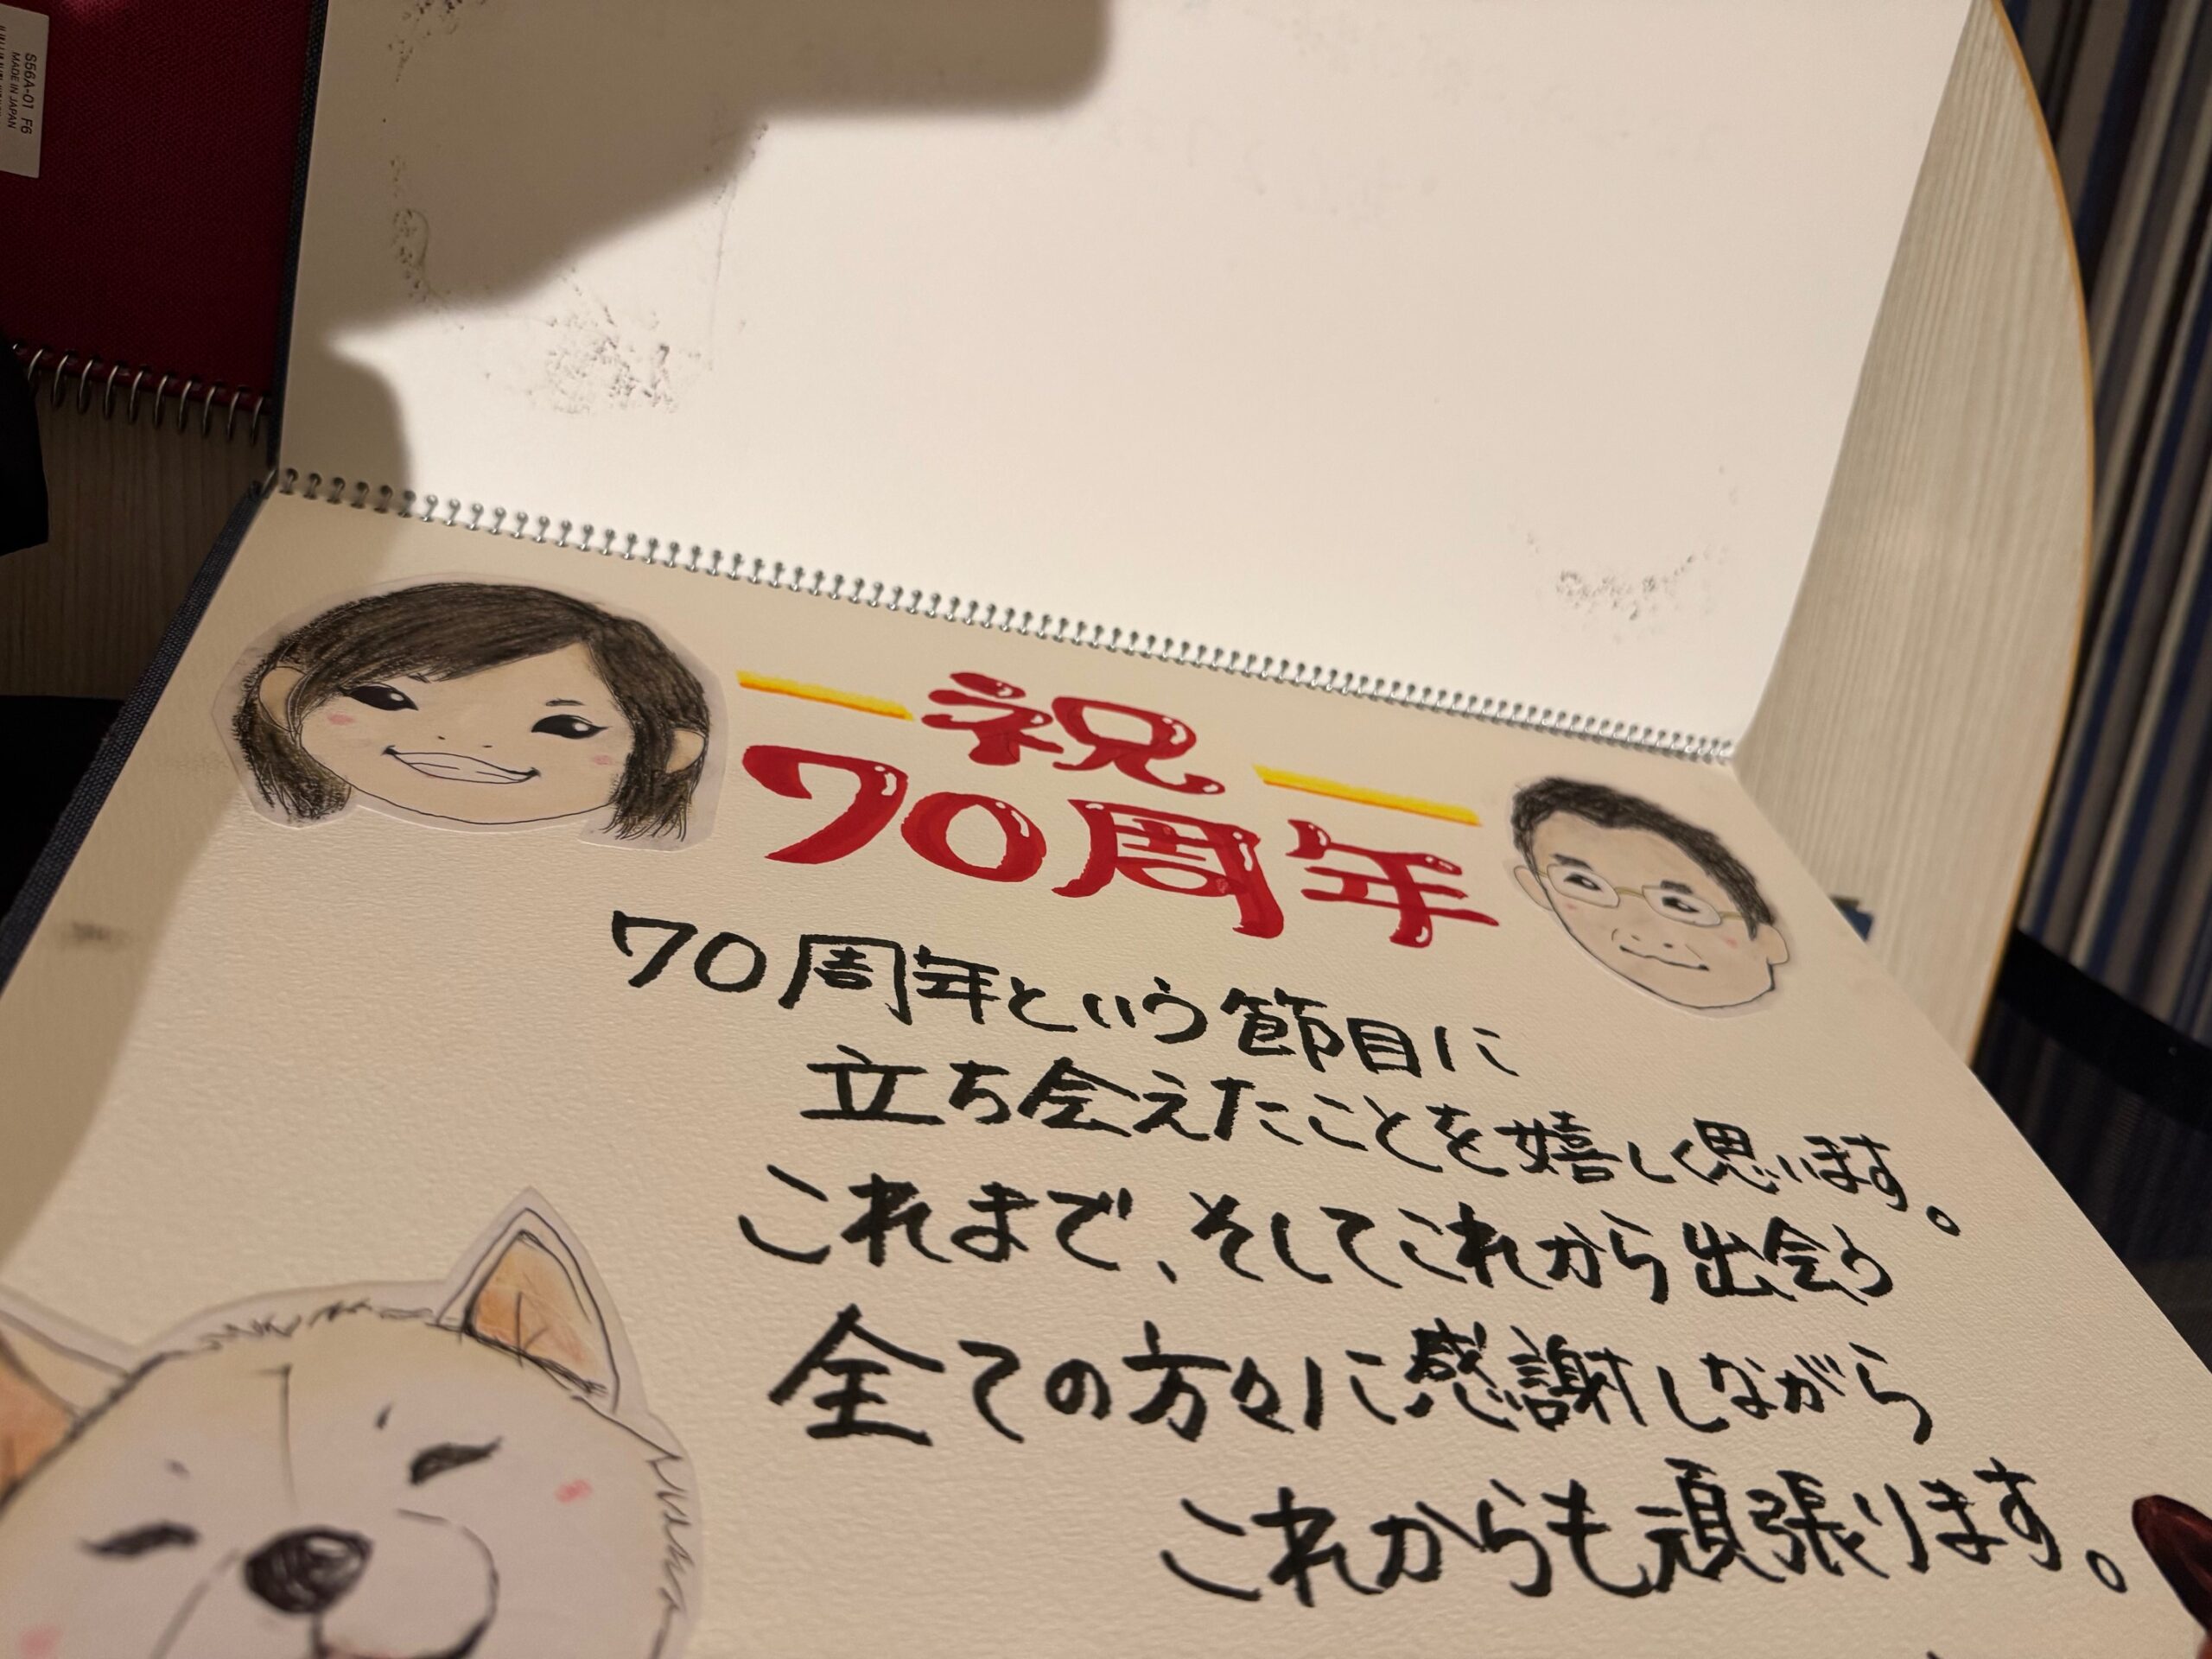 S56A-01 F6
MADE IN JAPAN
祝
70周年
70周年という節目に
立ち会えたことを嬉しく思います。
これまで、そしてこれから出会う
全ての方々に感謝しながら
これからも頑張ります。